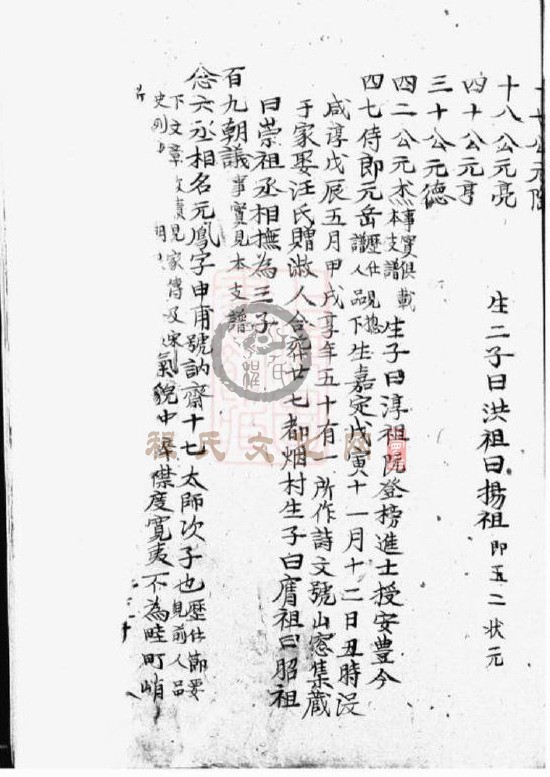 十八公元亮 生二子曰洪祖曰揚祖 即五二状元
四十公元亨
三十公元德
四二公元杰 事實俱載本支譜 生子曰淳祖阮登榜進士授安豊今
四七侍郎元岳 歷仕見總譜人品下 生嘉定戊寅十一月十二日丑時没
咸淳戊辰五月甲戌享年五十有一所作詩文號山窓集藏
于家娶汪氏贈淑人合葬廿七都烟村生子曰膺祖曰昭祖
曰崇祖丞相撫為三子
百九朝議 事實見本支譜
忿六丞相名元鳳字申甫號訥齋十七太師次子也 歷仕節要見前人品
下文章 見家傳及宋史列 氣貌中 襟度寬夷不為畦町峭